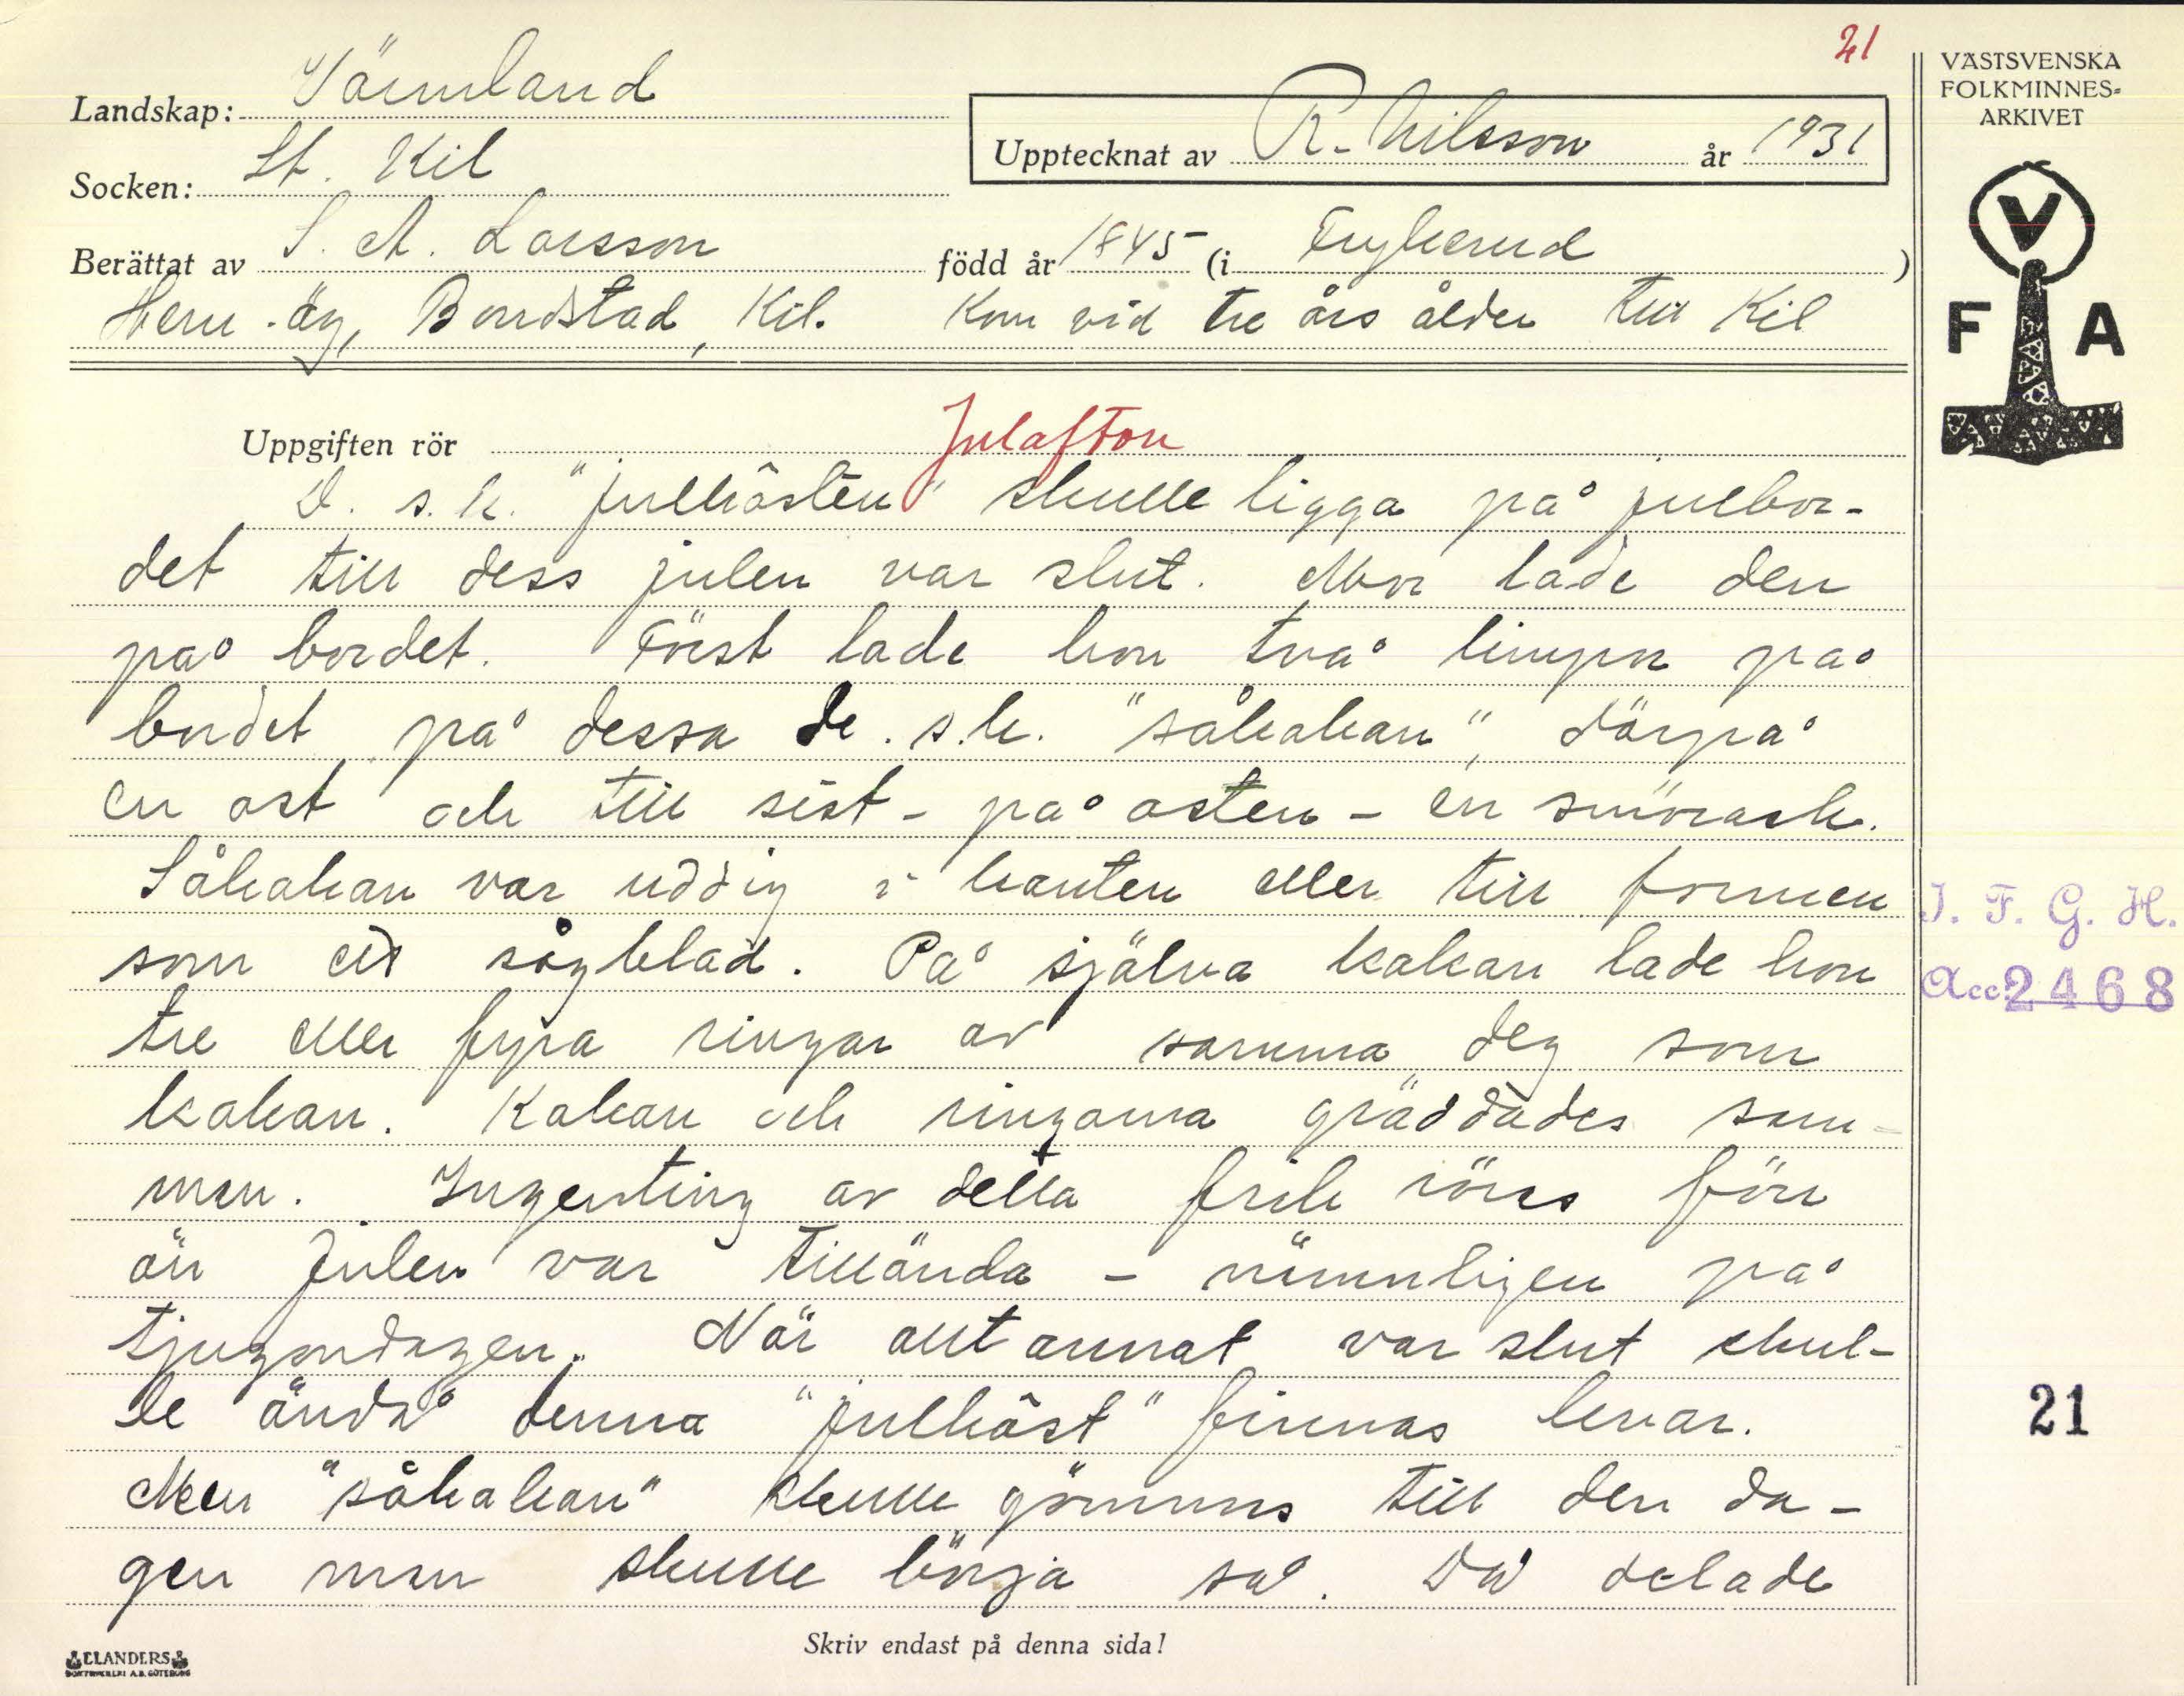 21
Landskap: Värmland
Socken: St. Kil
Upptecknat av R. Nilsson år 1931
Berättat av S. A. Larsson född år 1845 (i Frykerud)
Hem.-äg, Bondstad, Kil. Kom vid tre års ålder till Kil
Uppgiften rör Julafton
D. s.k. "julhösten" skulle ligga på julbor-
det till dess julen var slut. Mor lade den
på bordet. Först lade hon två limpor på
bordet på dessa de. s.k. "såkakan", därpå
en ost och till sist - på osten - en smörask.
Såkakan var uddig i kanten eller till formen
som ett sågblad. På själva kakan lade hon
tre eller fyra ringar av samma deg som
kakan. Kakan och ringarna gräddades sam-
man. Ingenting av detta fick röras förr
än julen var tillända - nämnligen på
tjugondagen. När allt annat var slut skul-
le ändå denna "julhöst" finnas kvar.
Men "såkakan" skulle gömmas till den da-
gen man skulle börja så. Då delade
Skriv endast på denna sida!
ELANDERS
BOKTRYCKERI A.B. GÖTEBORG
VÄSTSVENSKA
FOLKMINNES-
ARKIVET
V
F A
I. F. G. H.
Acc. 2468
21